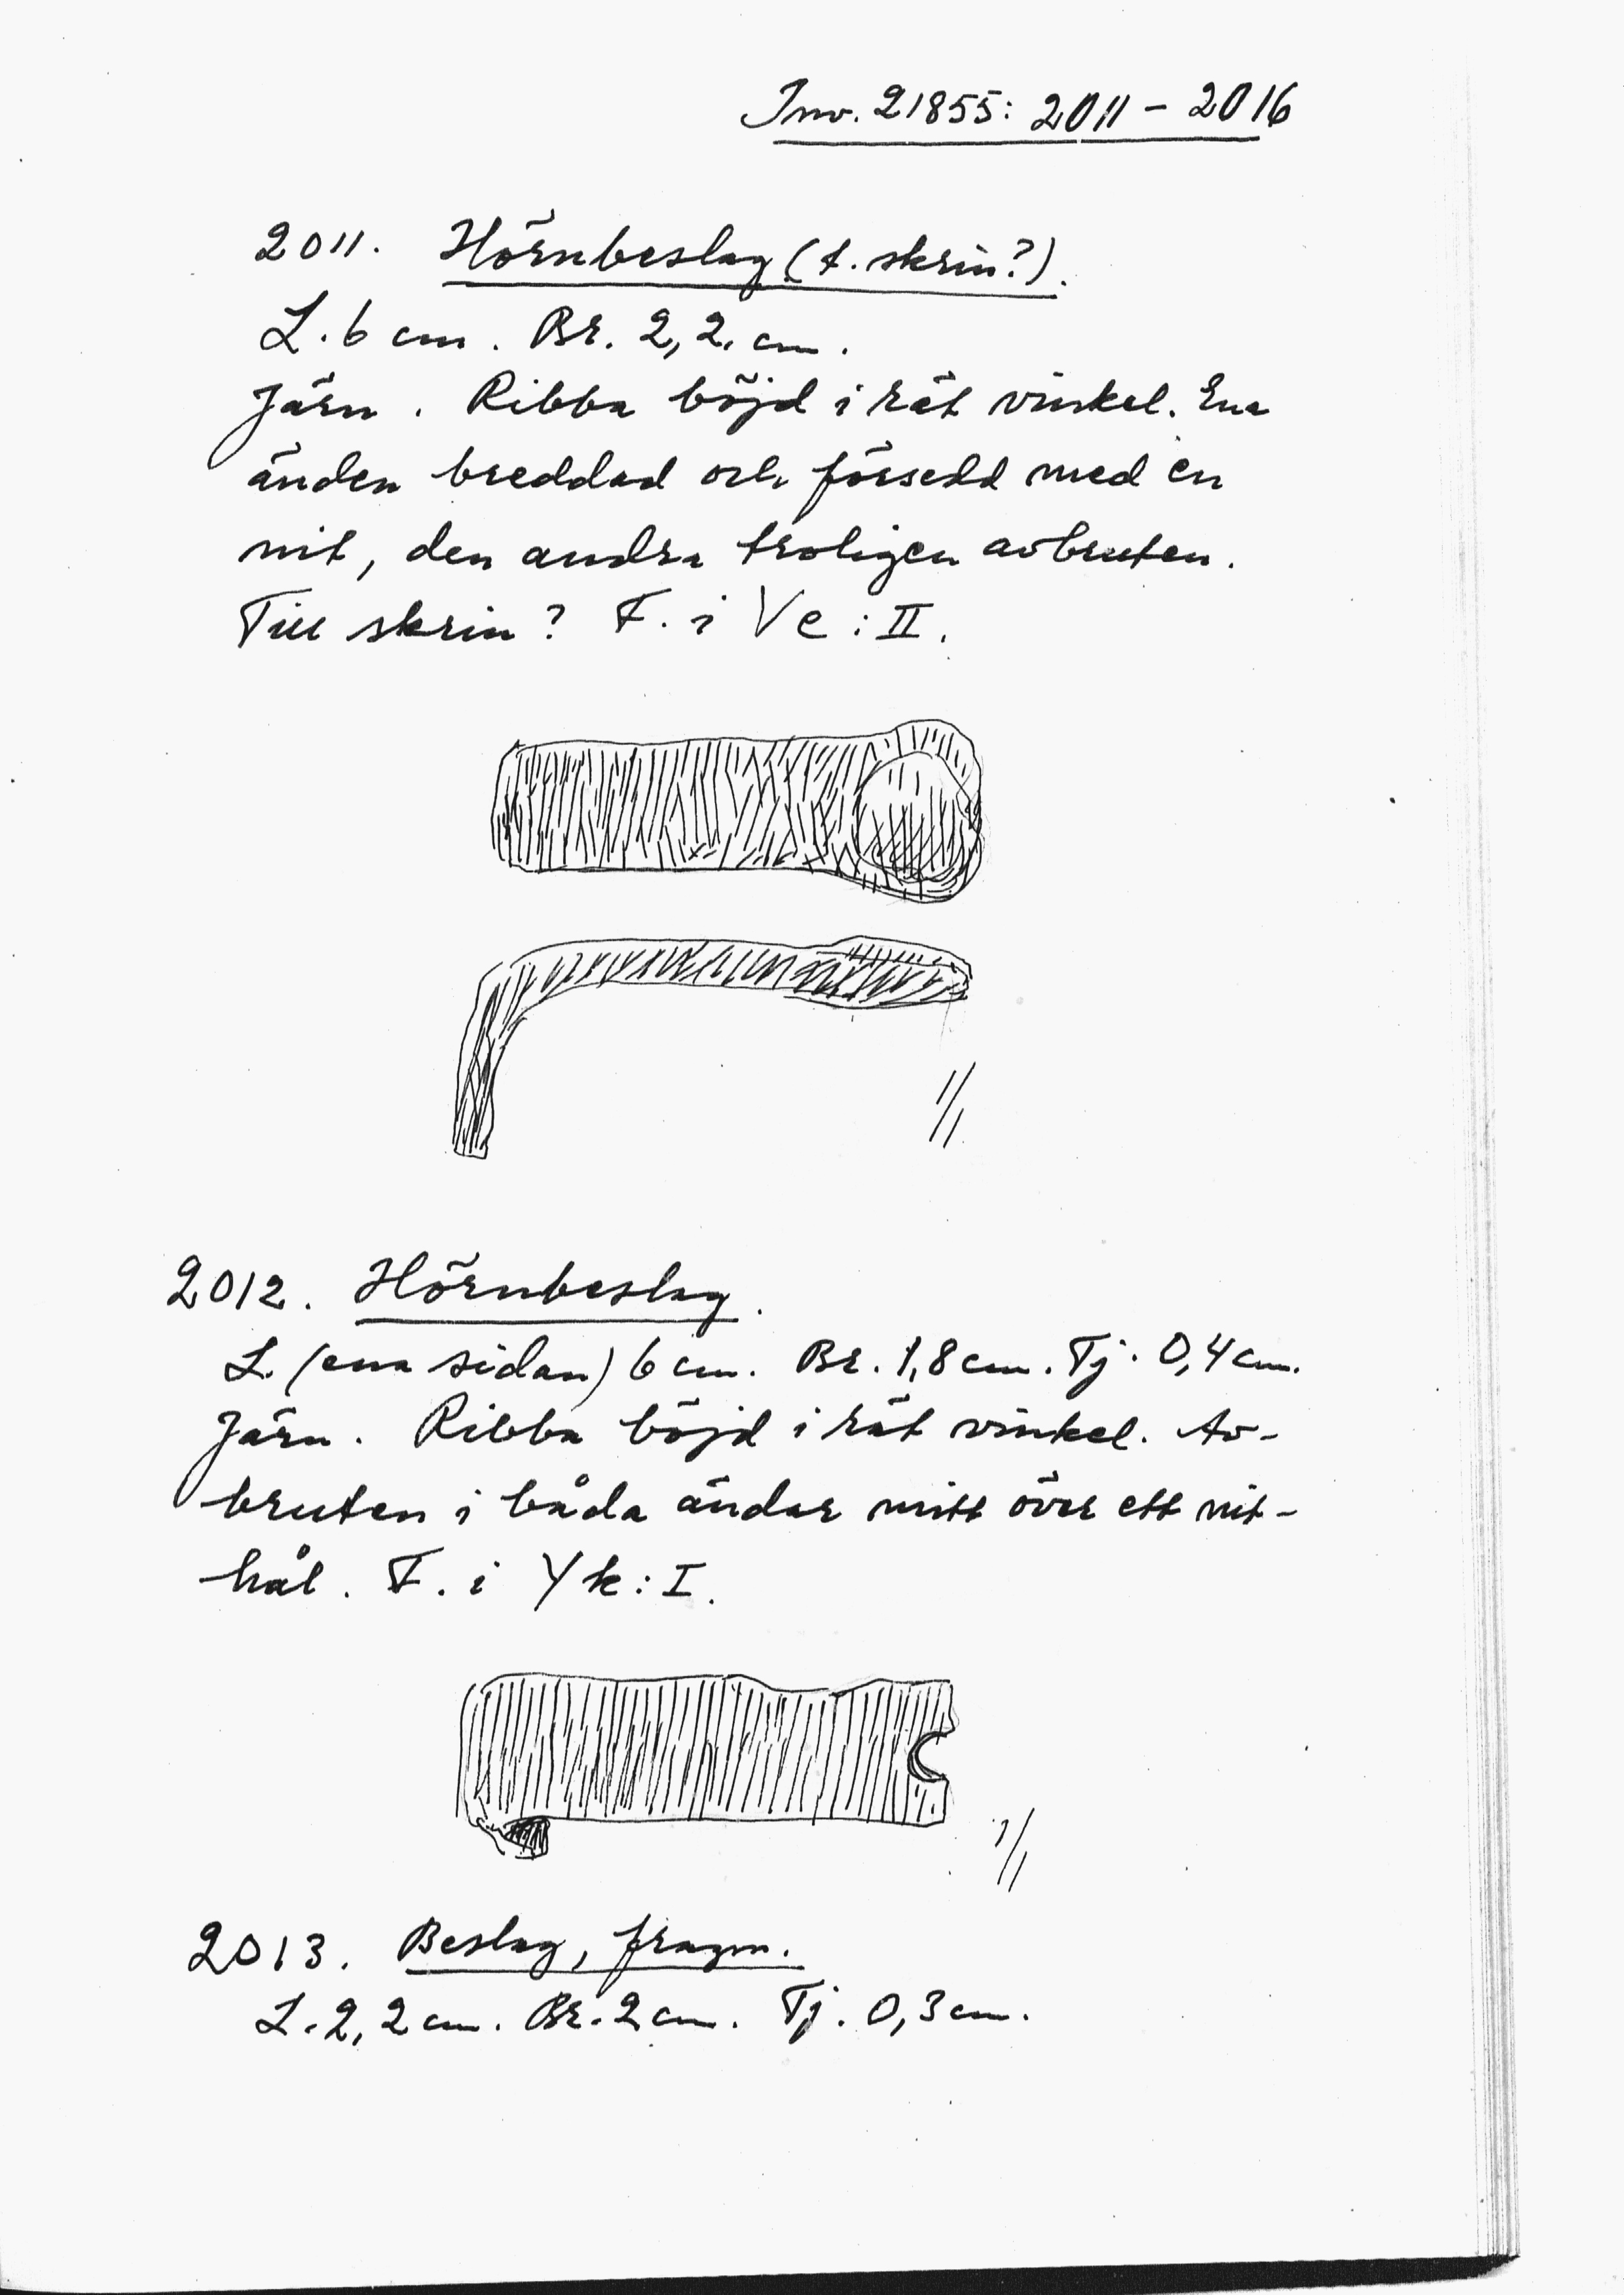 Inv. 21855: 2011 - 2016
2011. Hörnbeslag (t. skrin?).
L. 6 cm. Br. 2,2 cm.
Järn. Ribba böjd i rät vinkel. Ena
änden breddad och försedd med en
nit, den andra troligen avbruten.
Till skrin? F. i Ve: II.
1/1
2012. Hörnbeslag.
L. (ena sidan) 6 cm. Br. 1,8 cm. Tj. 0,4 cm.
Järn. Ribba böjd i rät vinkel. Av-
bruten i båda ändar mitt över ett nit-
hål. F. i Yk: I.
1/1
2013. Beslag, fragm.
L. 2,2 cm. Br. 2 cm. Tj. 0,3 cm.